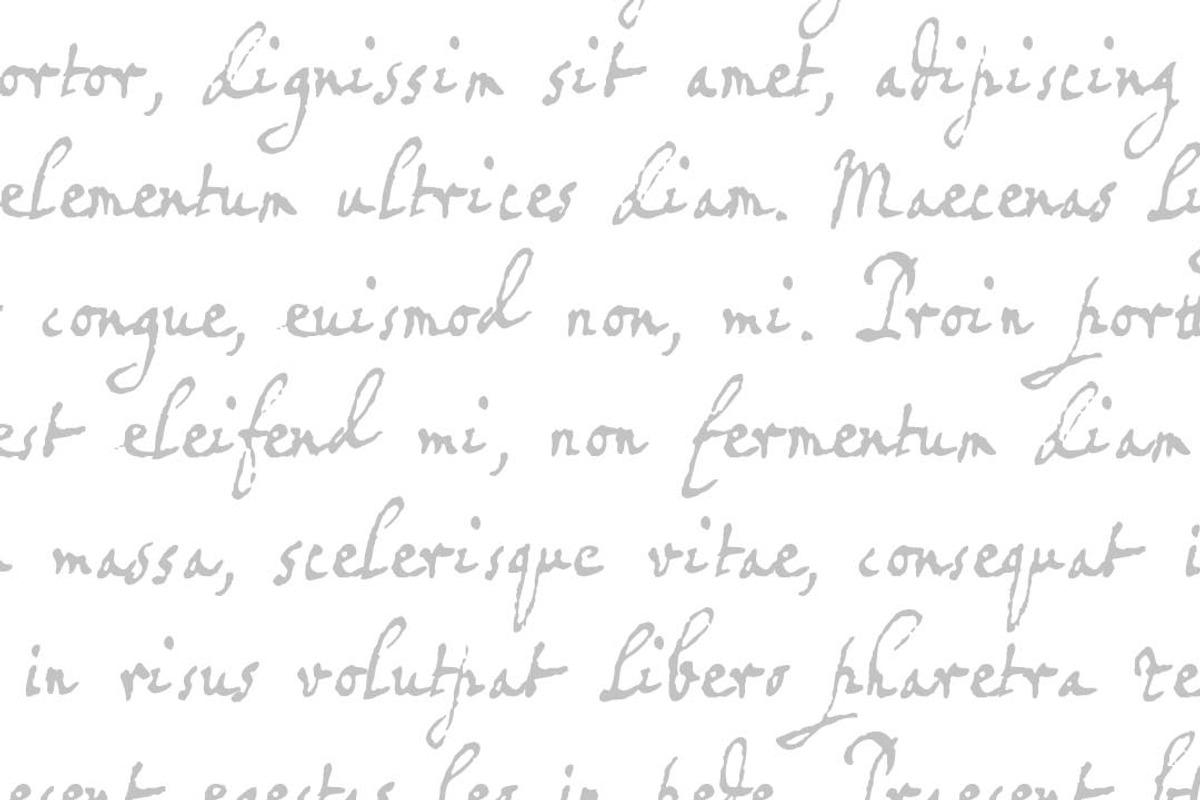 ortor, dignissim sit amet, adipiscing
elementum ultrices diam. Maecenas li
congue, euismod non, mi. Proin portt
est eleifend mi, non fermentum diam
massa, scelerisque vitae, consequat i
in risus volutpat libero pharetra te
esent egestas leo in pede. Praesent bl